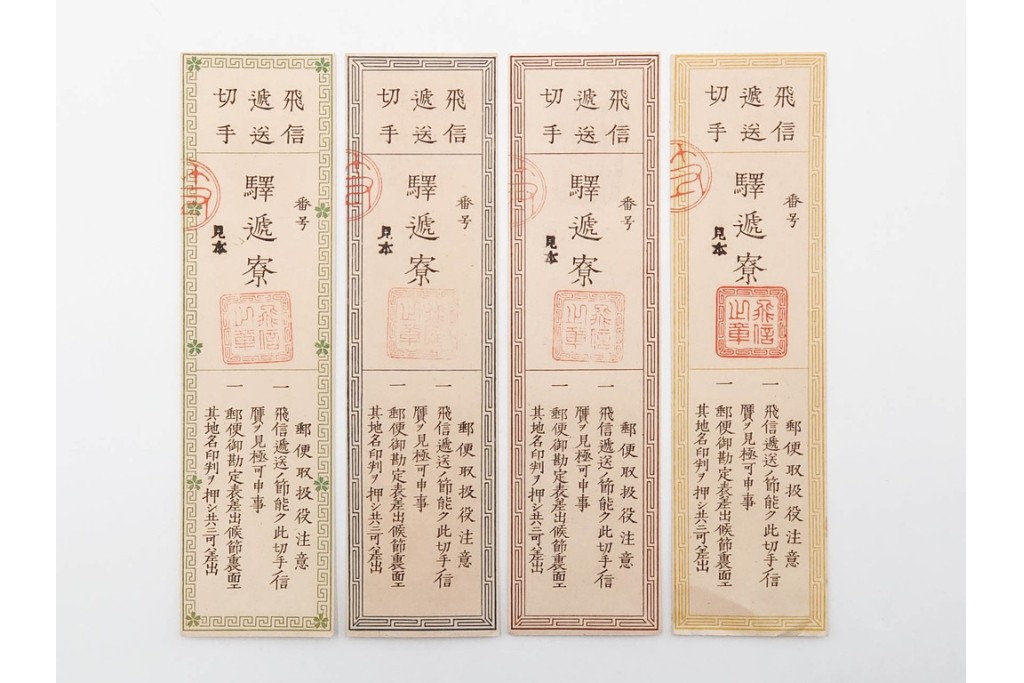 飛信
遞送
切手
番号
驛遞寮
見本
飛信
之章
郵便取扱役注意
一 飛信遞送ノ節能ク此切手ノ信
贋ヲ見極可申事
一 郵便御勘定表差出候節裏面エ
其地名印判ヲ押シ共ニ可差出
飛信
遞送
切手
番号
驛遞寮
見本
飛信
之章
郵便取扱役注意
一 飛信遞送ノ節能ク此切手ノ信
贋ヲ見極可申事
一 郵便御勘定表差出候節裏面エ
其地名印判ヲ押シ共ニ可差出
飛信
遞送
切手
番号
驛遞寮
見本
飛信
之章
郵便取扱役注意
一 飛信遞送ノ節能ク此切手ノ信
贋ヲ見極可申事
一 郵便御勘定表差出候節裏面エ
其地名印判ヲ押シ共ニ可差出
飛信
遞送
切手
番号
驛遞寮
見本
飛信
之章
郵便取扱役注意
一 飛信遞送ノ節能ク此切手ノ信
贋ヲ見極可申事
一 郵便御勘定表差出候節裏面エ
其地名印判ヲ押シ共ニ可差出